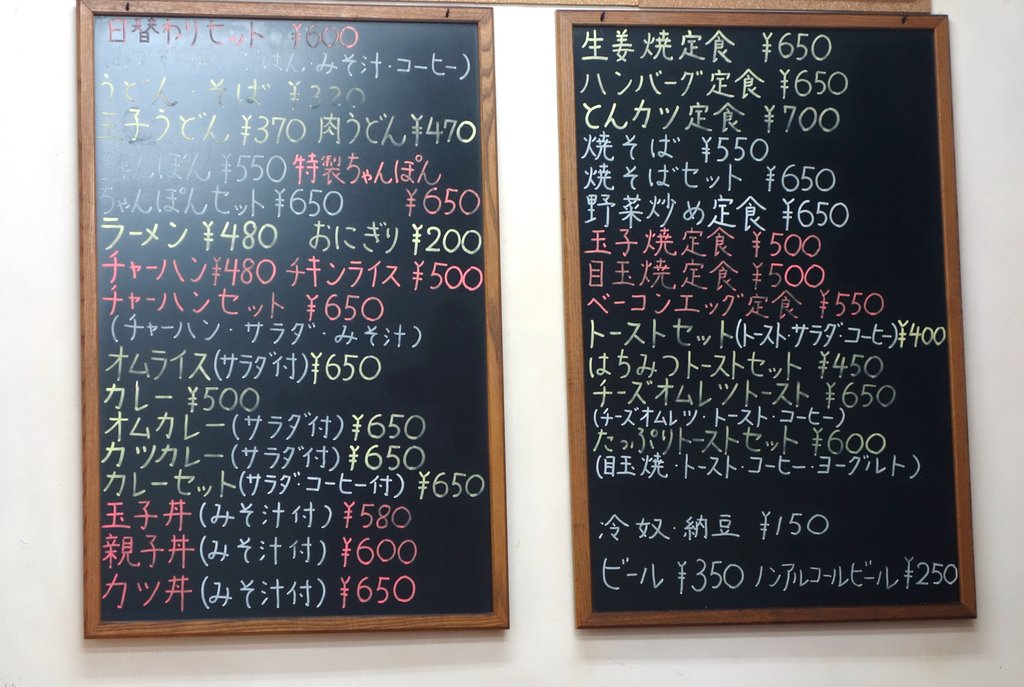 日替わりセット ¥600
ごはん・みそ汁・コーヒー)
うどん・そば ¥330
玉子うどん ¥370 肉うどん ¥470
ちゃんぽん ¥550 特製ちゃんぽん
ちゃんぽんセット ¥650 ¥650
ラーメン ¥480 おにぎり ¥200
チャーハン ¥480 チキンライス ¥500
チャーハンセット ¥650
(チャーハン・サラダ・みそ汁)
オムライス(サラダ付) ¥650
カレー ¥500
オムカレー(サラダ付) ¥650
カツカレー(サラダ付) ¥650
カレーセット(サラダ・コーヒー付) ¥650
玉子丼(みそ汁付) ¥580
親子丼(みそ汁付) ¥600
カツ丼(みそ汁付) ¥650
生姜焼定食 ¥650
ハンバーグ定食 ¥650
とんカツ定食 ¥700
焼そば ¥550
焼そばセット ¥650
野菜炒め定食 ¥650
玉子焼定食 ¥500
目玉焼定食 ¥500
ベーコンエッグ定食 ¥550
トーストセット(トースト・サラダ・コーヒー) ¥400
はちみつトーストセット ¥450
チーズオムレツトースト ¥650
(チーズオムレツ・トースト・コーヒー)
たっぷりトーストセット ¥600
(目玉焼・トースト・コーヒー・ヨーグルト)
冷奴・納豆 ¥150
ビール ¥350 ノンアルコールビール ¥250